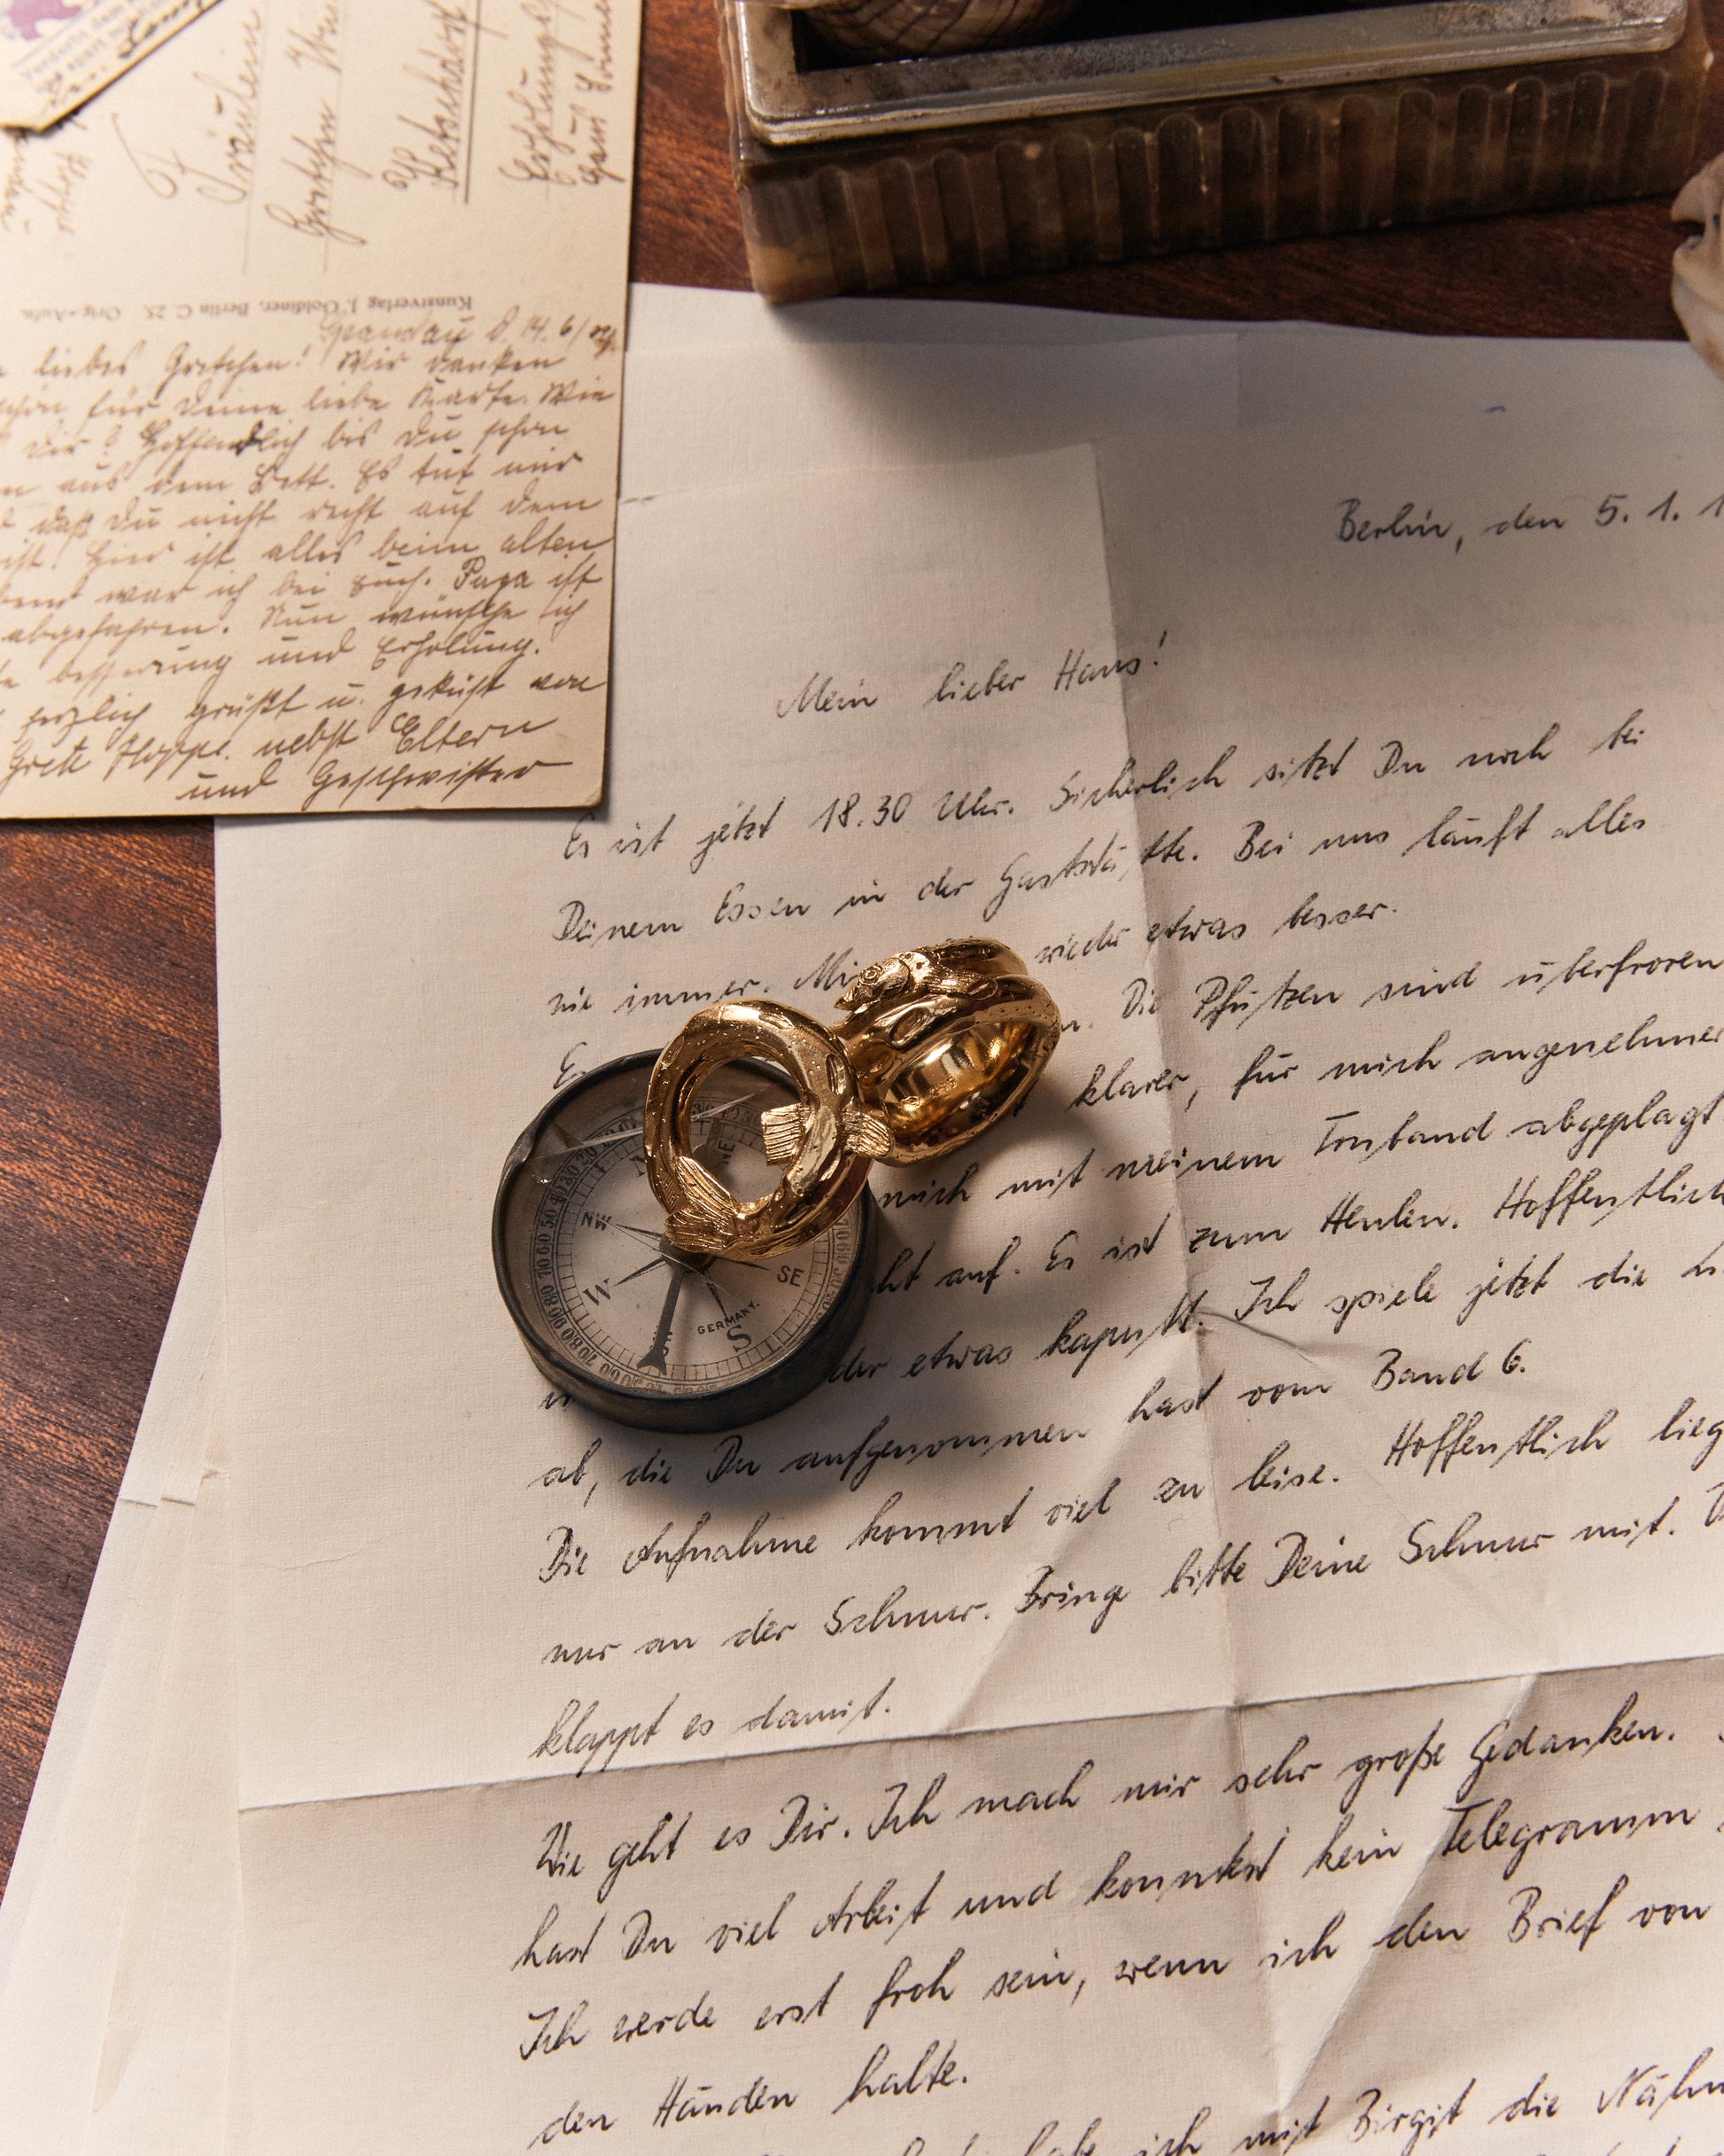 Fräulein
Kunstverlag J. Goldiner, Berlin C. 25.
Spandau d. 14. 6/
liebes Gretchen! Wir danken
für Deine liebe Karte. Wie
Dir? Hoffendlich bis Du schon
aus dem Bett. Es tut mir
daß Du nicht recht auf dem
ist! Hier ist alles beim alten
war ich bei Euch. Papa ist
abgefahren. Nun wünsche ich
besserung und Erholung.
herzlich grüßt u. geküßt von
Grete Hoppe. nebst Eltern
und Geschwister
Berlin, den 5. 1. 1
Mein lieber Hans!
Es ist jetzt 18.30 Uhr. Sicherlich sitzt Du noch bei
Deinem Essen in der Gaststätte. Bei uns läuft alles
wie immer. Mi wieder etwas besser.
E n. Die Pfützen sind überfroren
klarer, für mich angenehmer
mich mit meinem Tonband abgeplagt
ht auf. Es ist zum Heulen. Hoffentlich
der etwas kaputt. Ich spiele jetzt die
ab, die Du aufgenommen hast vom Band 6.
Die Aufnahme kommt viel zu leise. Hoffentlich lieg
nur an der Schnur. Bringe bitte Deine Schnur mit.
klappt es damit.
Wie geht es Dir. Ich mach mir sehr große Gedanken.
hast Du viel Arbeit und konntest kein Telegramm
Ich werde erst froh sein, wenn ich den Brief von
den Händen halte.
habe ich mit Birgit die Nähm
NE
NW
W
SE
S
GERMANY.